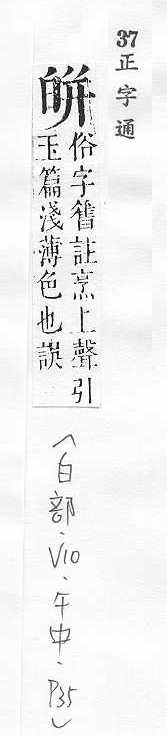 37正字通
皏
俗字舊註烹上聲引
玉篇淺薄色也誤
〈白部·V10·午中·P35〉